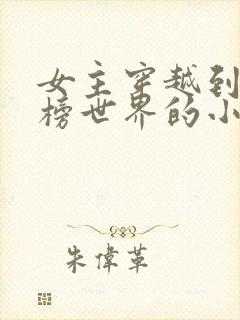 女主穿越到
榜世界的小
朱偉革